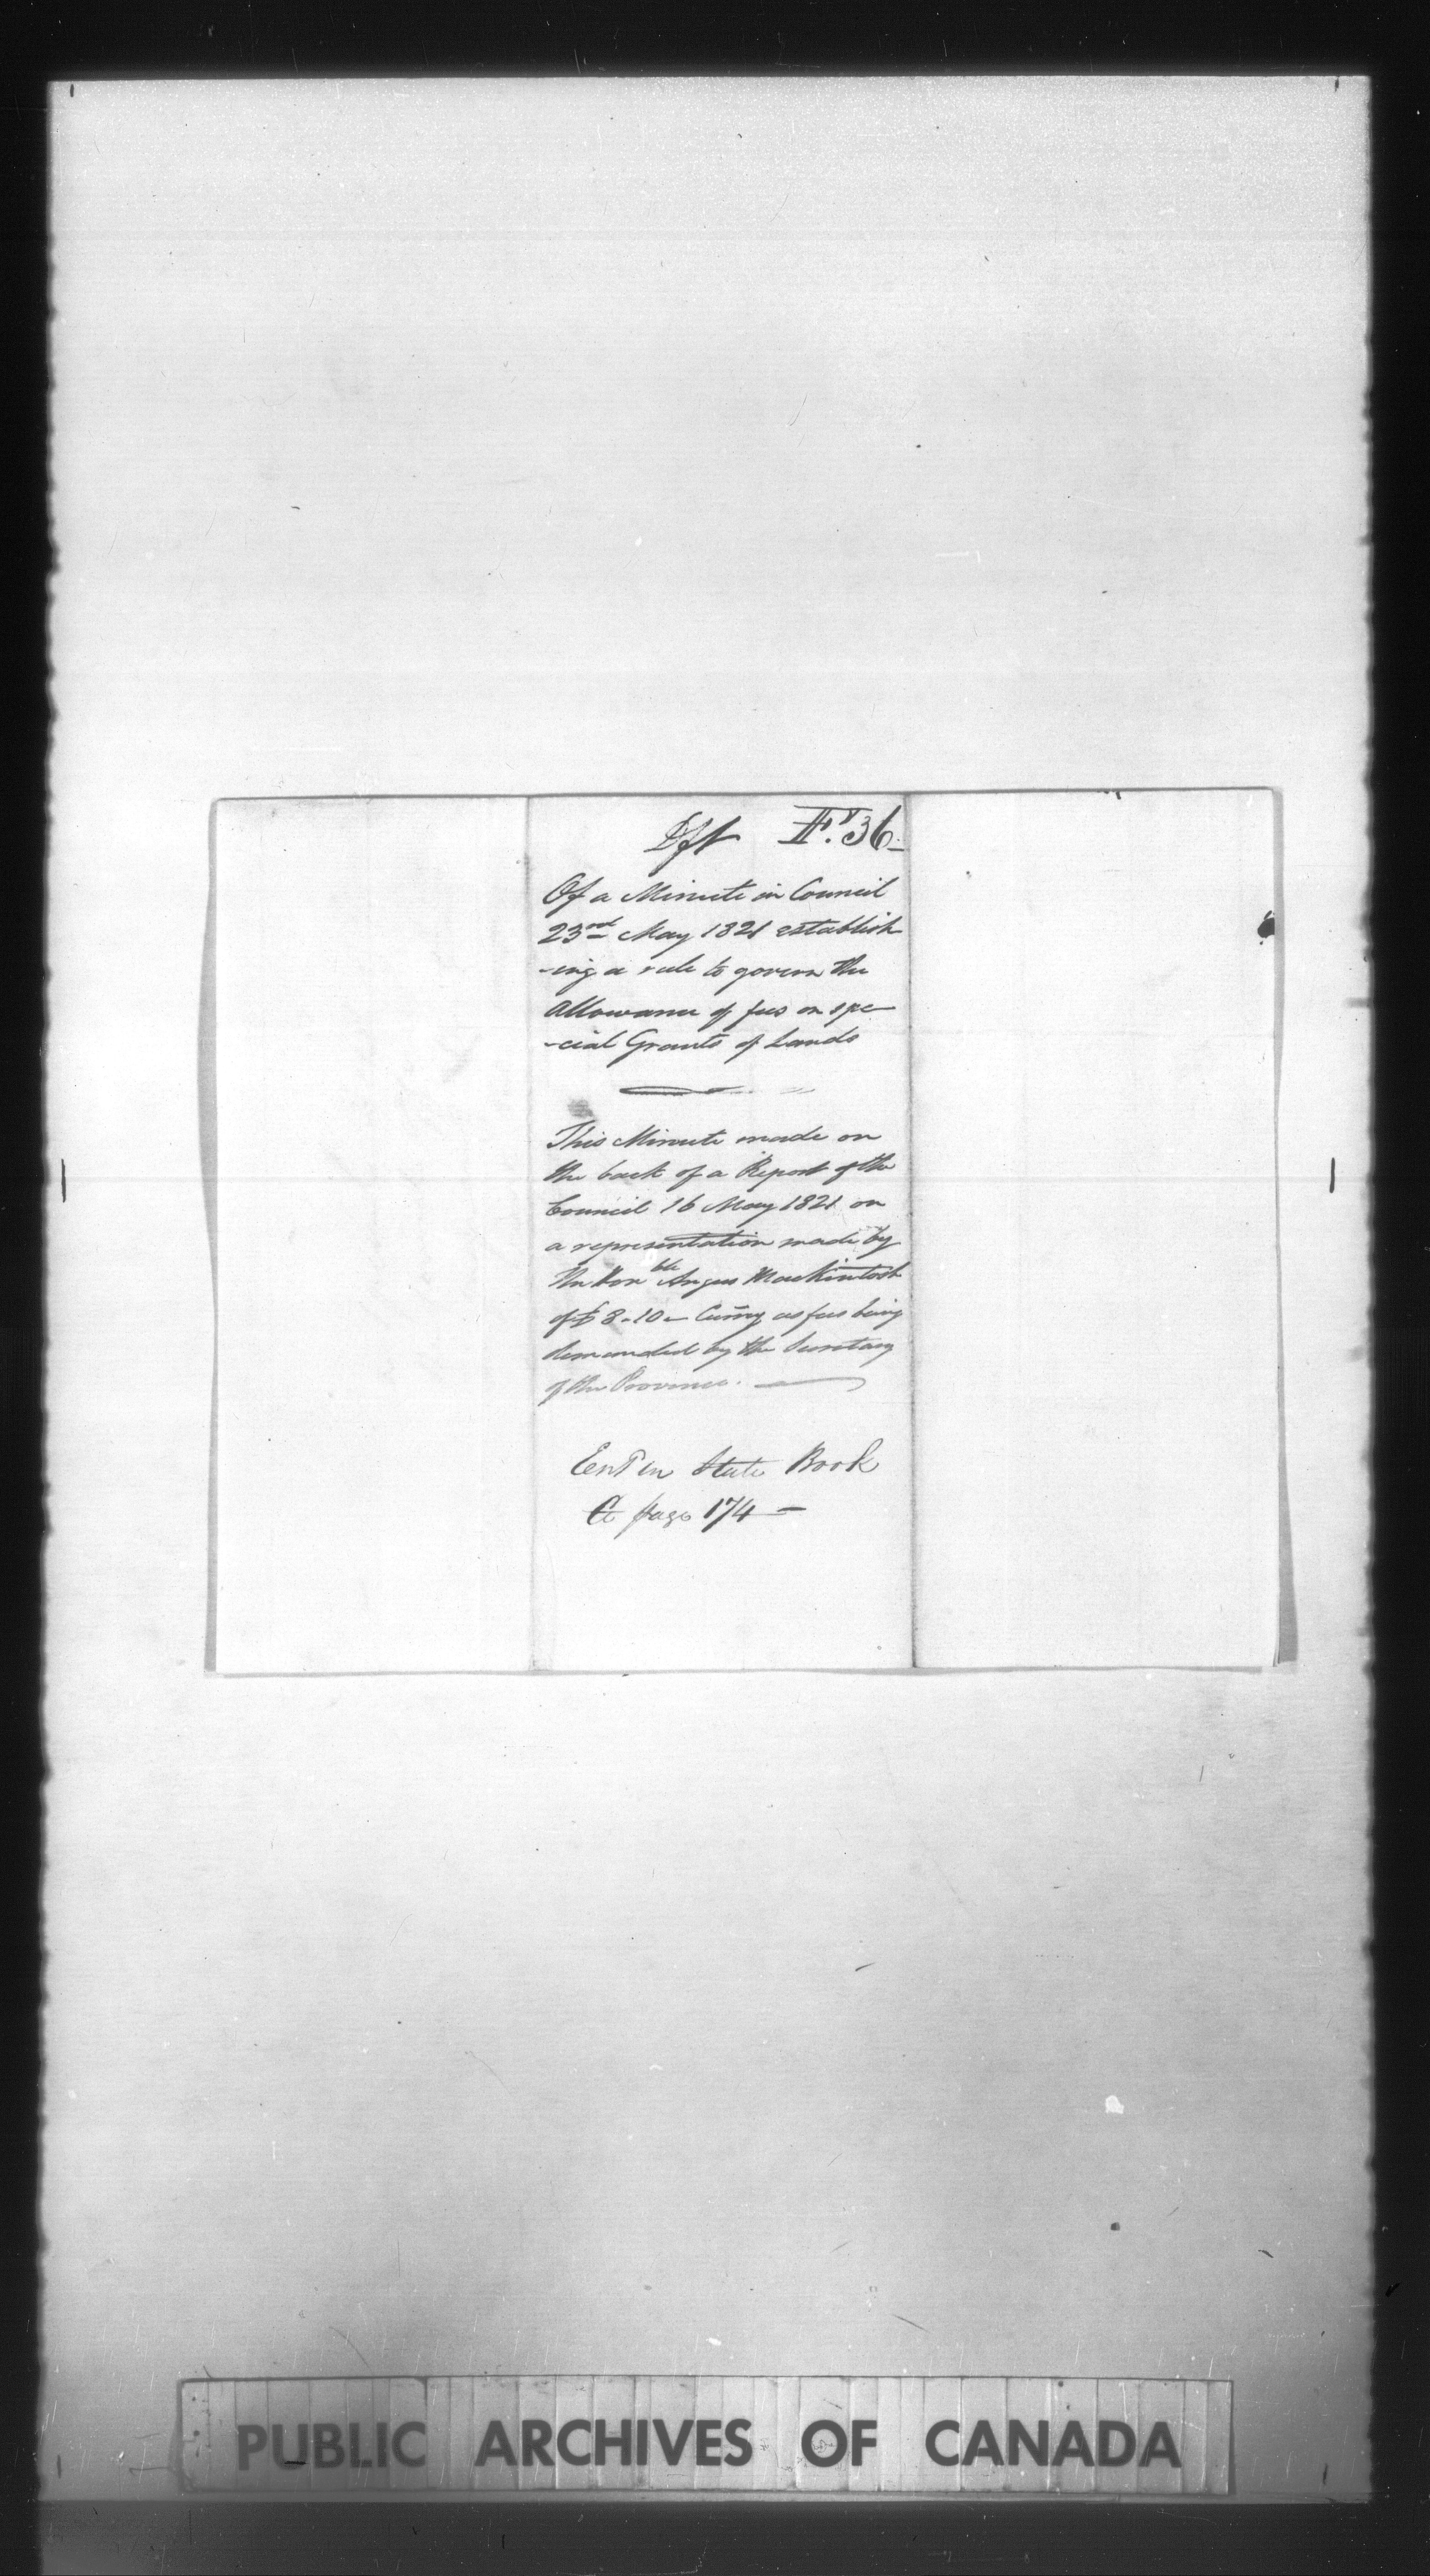 Dft F. 36
Of a Minute in Council
23rd May 1821 establish
-ing a rule to govern the
allowance of fees on spe
-cial Grants of Lands
This Minute made on
the back of a Report of the
Council 16 May 1821 on
a representation made by
the Honble Angus Mackintosh
of £8-10- Curry as fees being
demanded by the Secretary
of the Province.
Entd in State Book
page 174 -
PUBLIC ARCHIVES OF CANADA